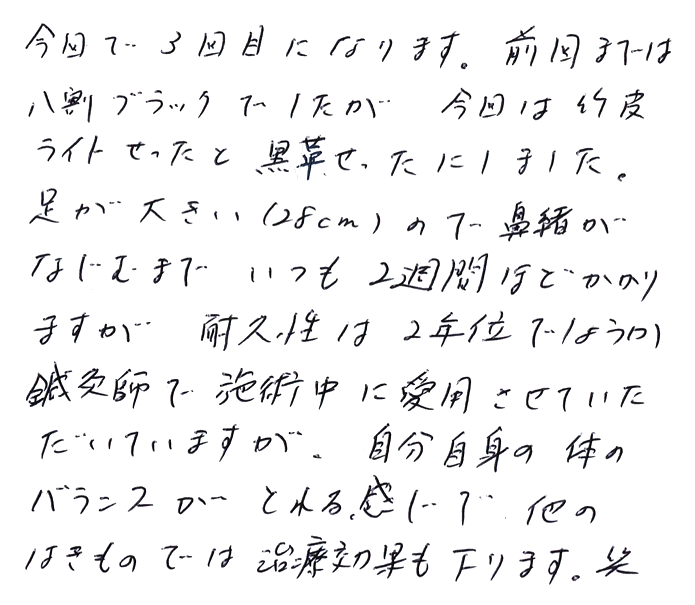 今回で3回目になります。前回までは
八割ブラックでしたが 今回は竹皮
ライトせったと黒革せったにしました。
足が大きい(28cm)ので鼻緒が
なじむまで いつも2週間ほどかかり
ますが 耐久性は2年位でしょうか
鍼灸師で施術中に愛用させていた
だいていますが、自分自身の体の
バランスがとれる感じで 他の
はきものでは治療効果も下ります。笑